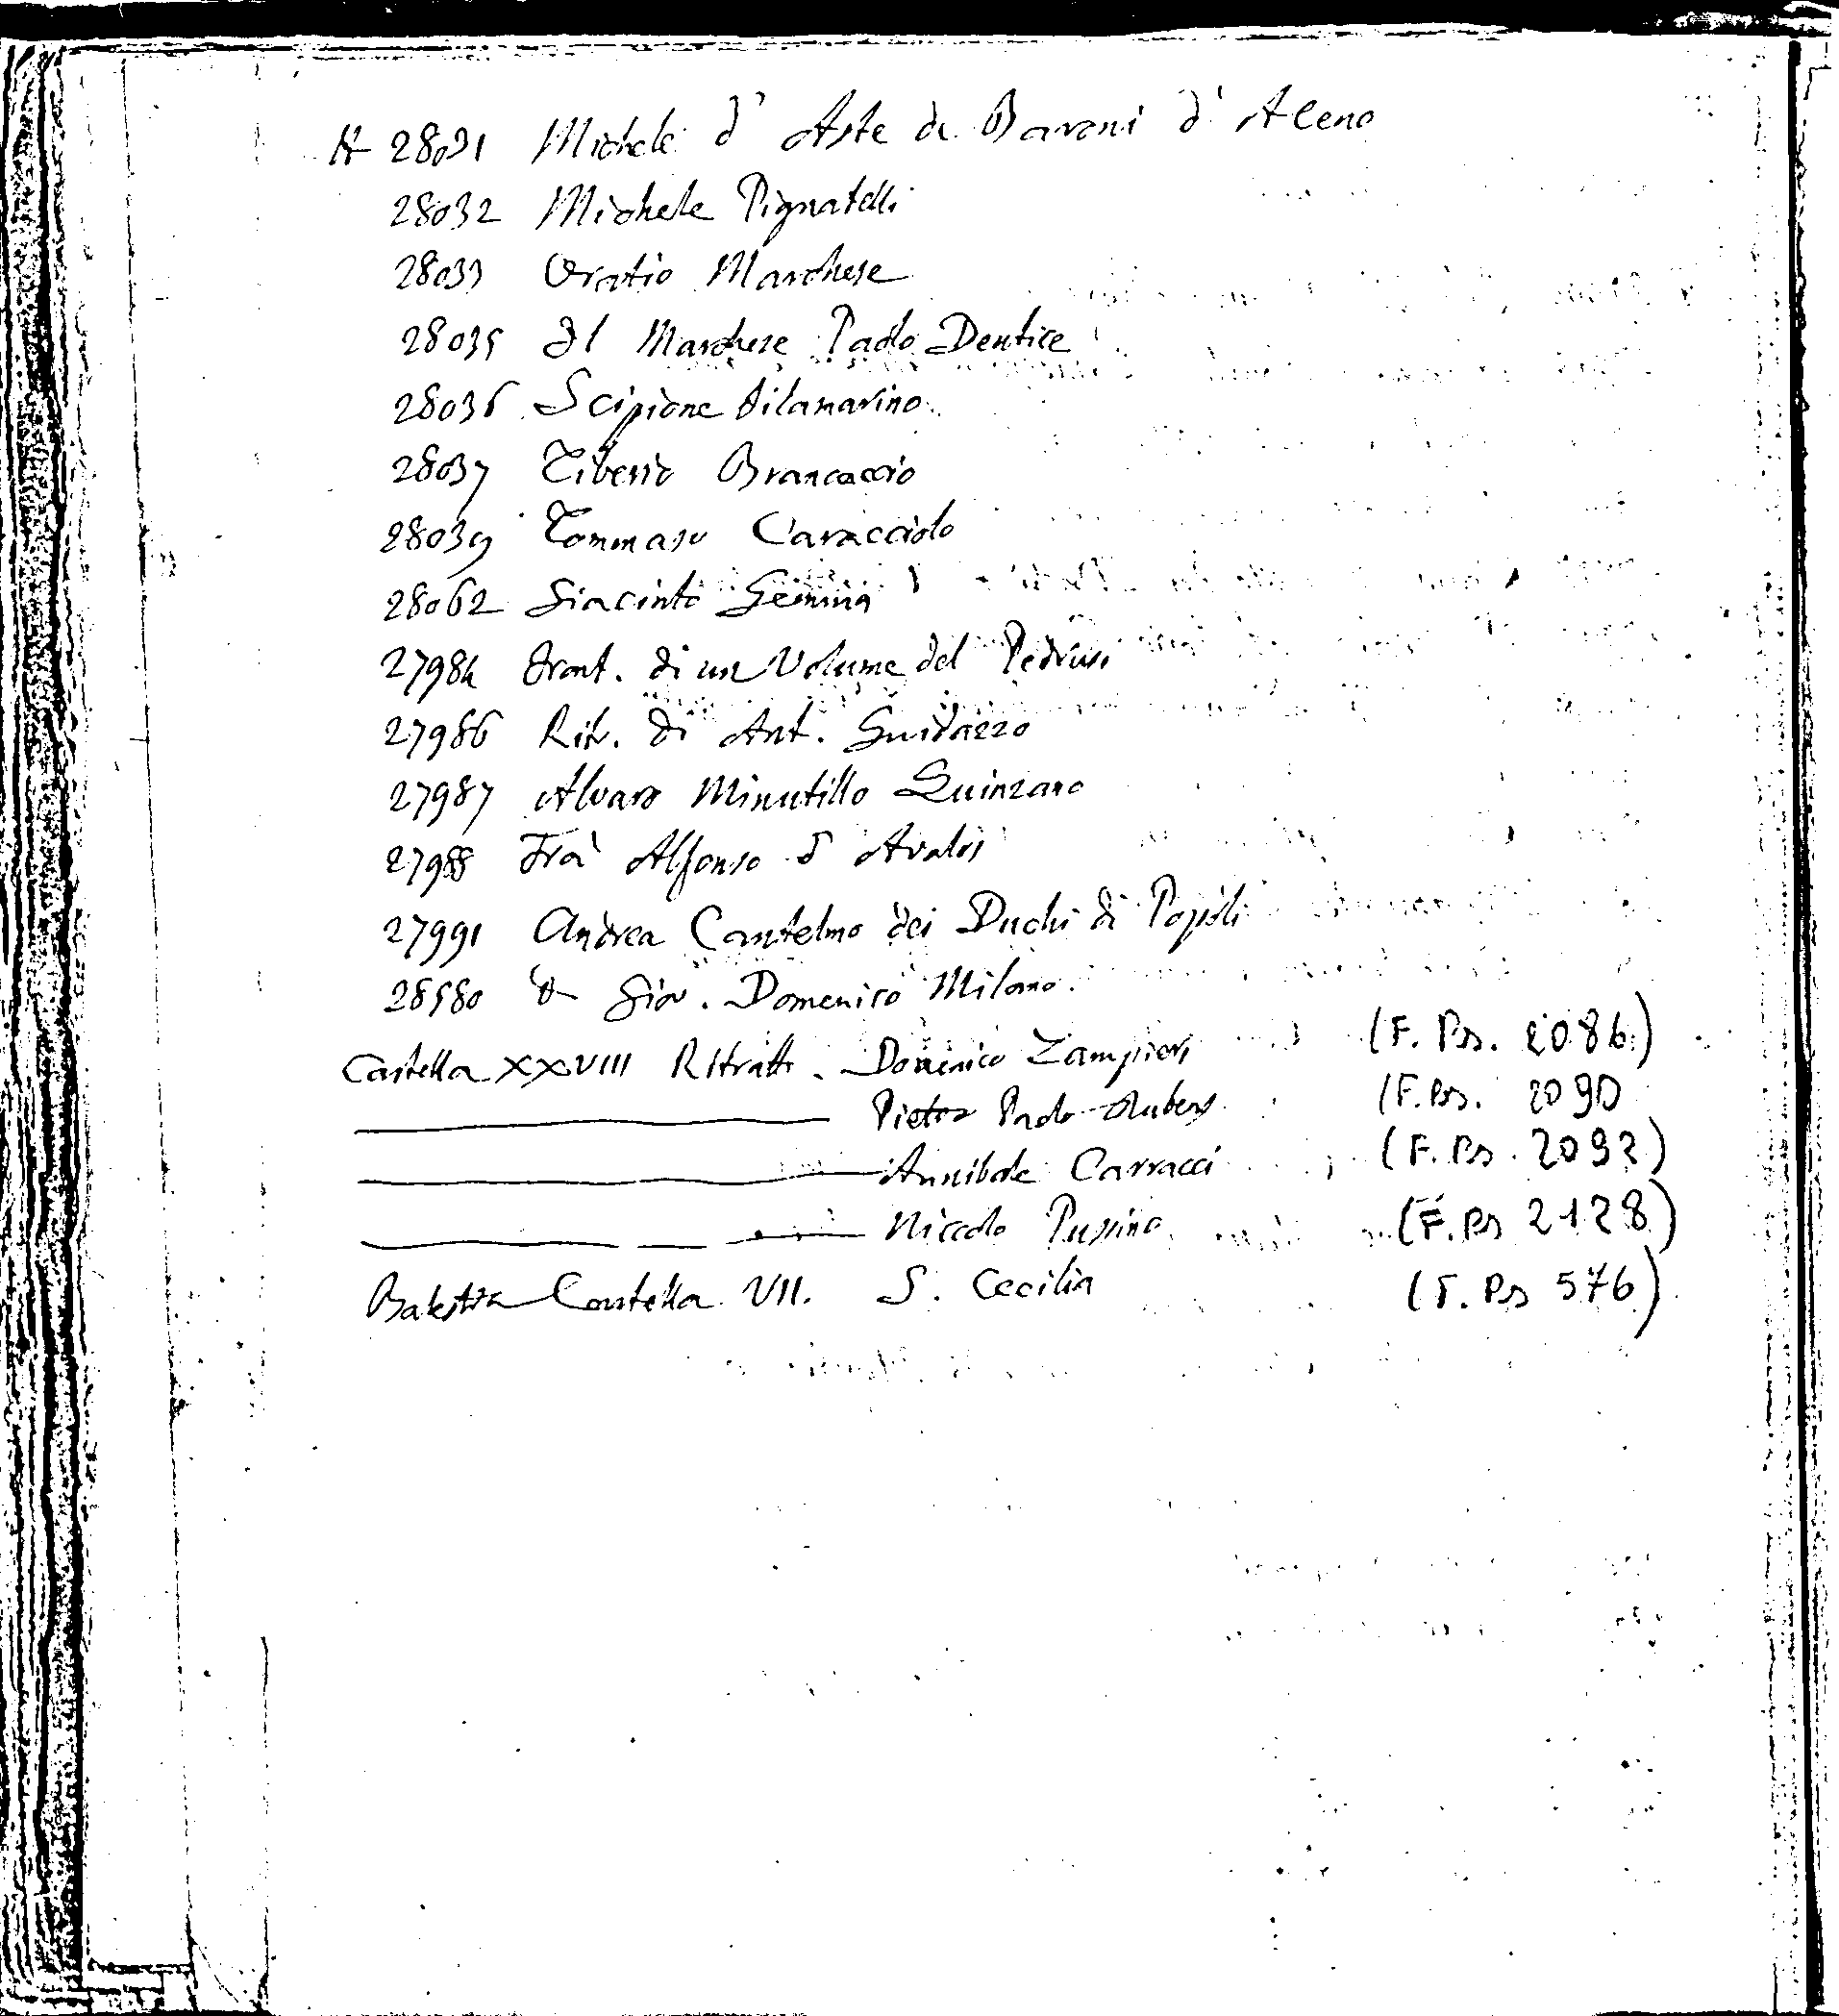 28031 Michele d' Aste de Baroni d' Aceno
28032 Michele Pignatelli
28033 Oratio Marchese
28035 Il Marchese Paolo Dentice
28036 Scipione Filamarino
28037 Tiberio Brancaccio
28039 Tommaso Caracciolo
28062 Giacinto Gemma
27984 Front. di un Volume del Pedrusi
27986 Ritr. di Ant. Guidazzo
27987 Alvaro Minutillo Quinzano
27988 Frà Alfonso d' Avalos
27991 Andrea Cantelmo dei Duchi di Popoli
28580 Giov. Domenico Milano.
Cartella XXVIII Ritratti. Domenico Zampieri (F. Ps. 2086)
Pietro Paolo Rubens (F. Ps. 2090
Annibale Carracci (F. Ps. 2092)
Niccolo Pussino (F. Ps 2128)
Balestra Cartella VII. S. Cecilia (F. Ps 576)